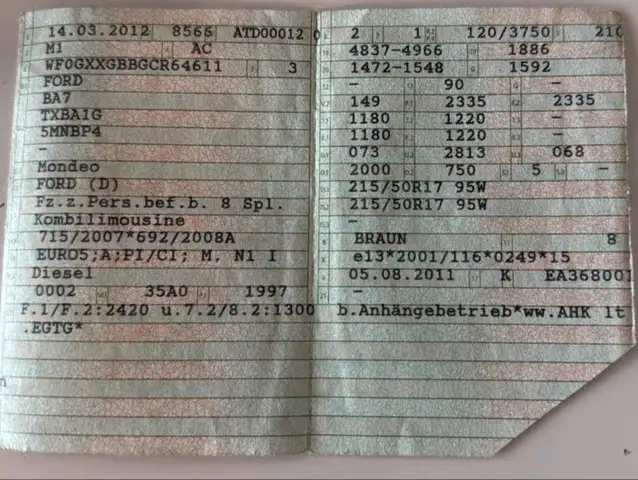 14.03.2012 8566 ATD00012 0
M1 AC
WF0GXXGBBGCR64611 3
FORD
BA7
TXBA1G
5MNBP4
-
Mondeo
FORD (D)
Fz.z.Pers.bef.b. 8 Spl.
Kombilimousine
715/2007*692/2008A
EURO5;A;PI/CI; M, N1 I
Diesel
0002 35A0 1997
2 1 120/3750 210
4837-4966 1886
1472-1548 1592
- 90 -
149 2335 2335
1180 1220 -
1180 1220 -
073 2813 068
2000 750 5 -
215/50R17 95W
215/50R17 95W
-
BRAUN 8
e13*2001/116*0249*15
05.08.2011 K EA368001
-
F.1/F.2:2420 u.7.2/8.2:1300 b.Anhängebetrieb*ww.AHK lt
.EGTG*